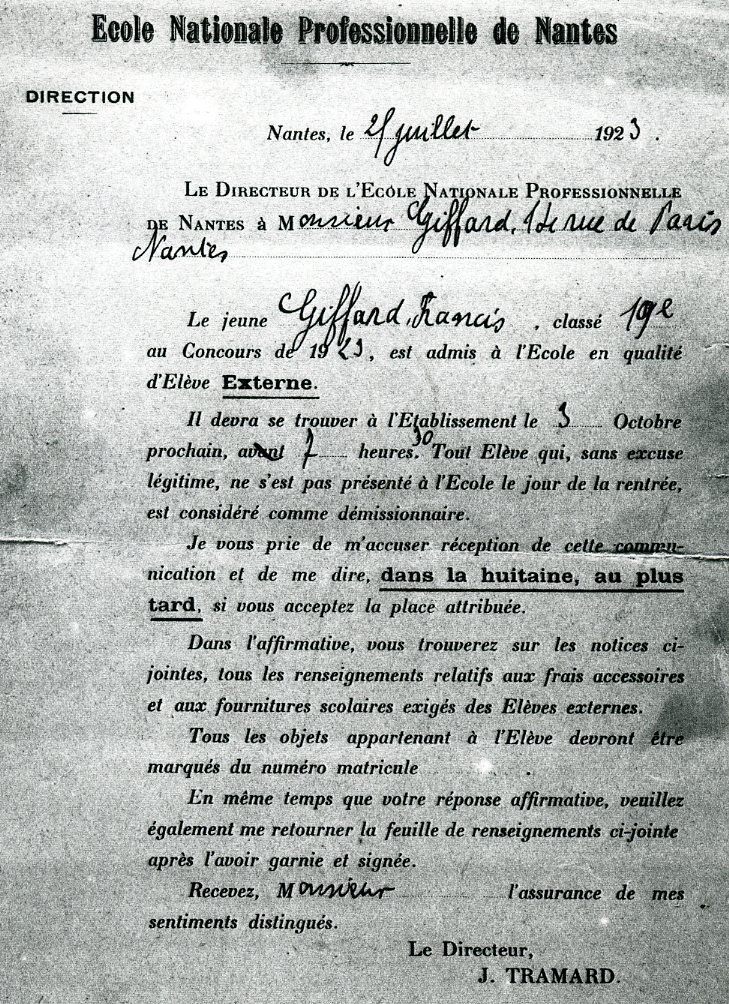 Ecole Nationale Professionnelle de Nantes
DIRECTION
Nantes, le 25 juillet 1923.
LE DIRECTEUR DE L'ECOLE NATIONALE PROFESSIONNELLE
DE NANTES à Monsieur Giffard, rue de Paris
Nantes
Le jeune Giffard, Francis, classé 19e
au Concours de 1923, est admis à l'Ecole en qualité
d'Elève Externe.
Il devra se trouver à l'Etablissement le 3 Octobre
prochain, avant 7 heures. 30 Tout Elève qui, sans excuse
légitime, ne s'est pas présenté à l'Ecole le jour de la rentrée,
est considéré comme démissionnaire.
Je vous prie de m'accuser réception de cette commu-
nication et de me dire, dans la huitaine, au plus
tard, si vous acceptez la place attribuée.
Dans l'affirmative, vous trouverez sur les notices ci-
jointes, tous les renseignements relatifs aux frais accessoires
et aux fournitures scolaires exigés des Elèves externes.
Tous les objets appartenant à l'Elève devront être
marqués du numéro matricule
En même temps que votre réponse affirmative, veuillez
également me retourner la feuille de renseignements ci-jointe
après l'avoir garnie et signée.
Recevez, Monsieur l'assurance de mes
sentiments distingués.
Le Directeur,
J. TRAMARD.